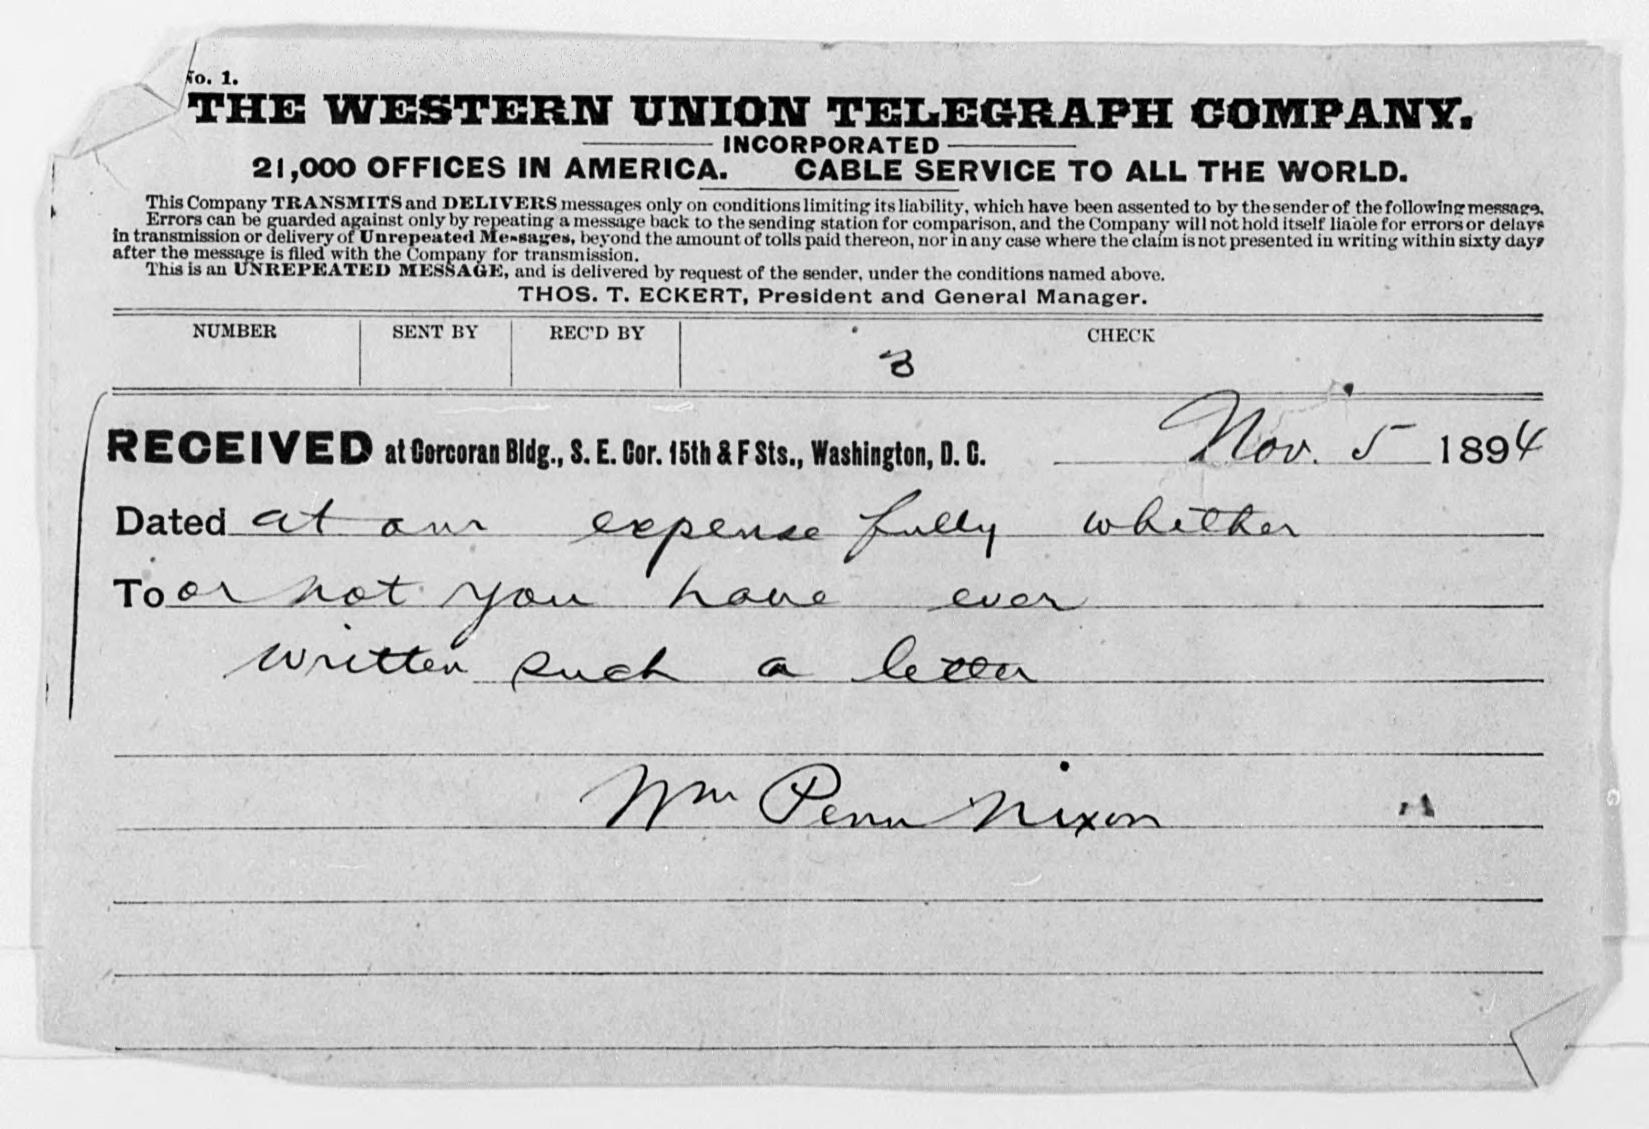 No. 1.
THE WESTERN UNION TELEGRAPH COMPANY.
INCORPORATED
21,000 OFFICES IN AMERICA. CABLE SERVICE TO ALL THE WORLD.
This Company TRANSMITS and DELIVERS messages only on conditions limiting its liability, which have been assented to by the sender of the following message.
Errors can be guarded against only by repeating a message back to the sending station for comparison, and the Company will not hold itself liable for errors or delays
in transmission or delivery of Unrepeated Messages, beyond the amount of tolls paid thereon, nor in any case where the claim is not presented in writing within sixty days
after the message is filed with the Company for transmission.
This is an UNREPEATED MESSAGE, and is delivered by request of the sender, under the conditions named above.
THOS. T. ECKERT, President and General Manager.
NUMBER SENT BY REC'D BY CHECK
3
RECEIVED at Corcoran Bldg., S. E. Cor. 15th & F Sts., Washington, D. C. Nov. 5 1894
Dated at our expense fully whether
To or not you have ever
written such a letter
Wm Penn Nixon